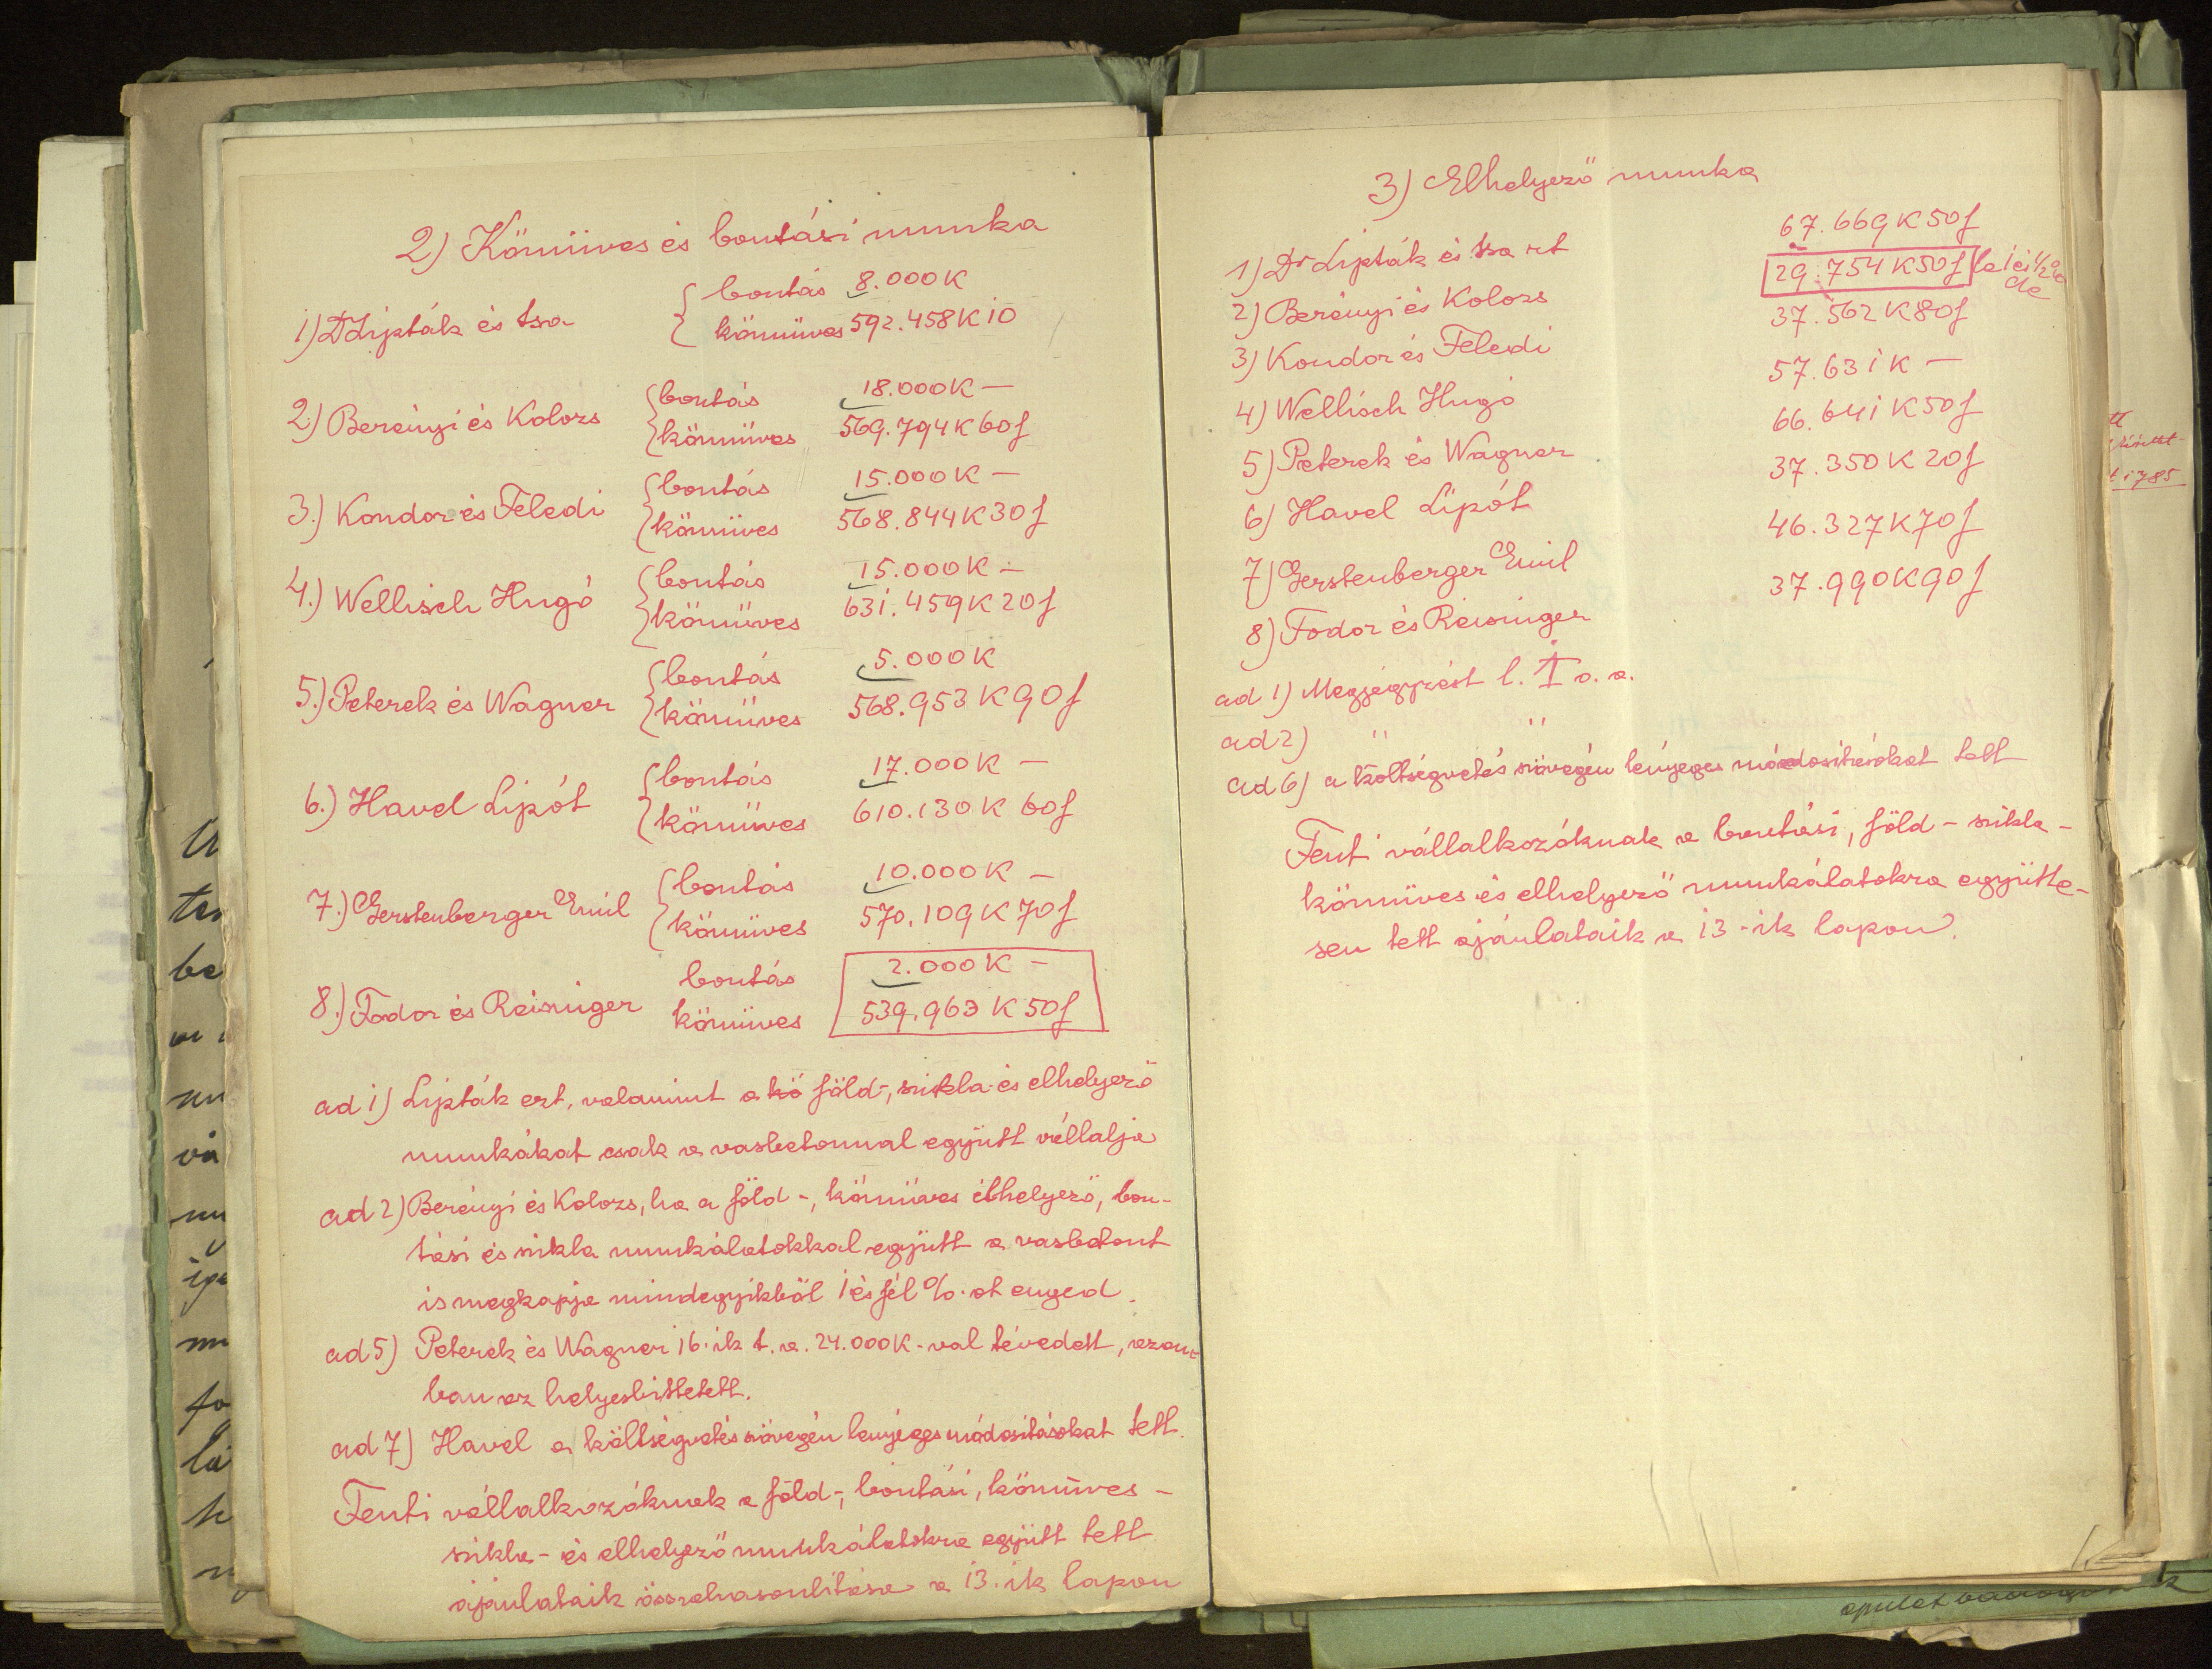 2) Kömüves és bontási munka
1) Dr Lipták és tsa { bontás 8.000 K
kömüves 592.458 K 10
2.) Berényi és Kolozs { bontás 18.000 K —
kömüves 569.794 K 60 f
3.) Kondor és Feledi { bontás 15.000 K —
kömüves 568.844 K 30 f
4.) Wellisch Hugó { bontás 15.000 K —
kömüves 631.459 K 20 f
5.) Peterek és Wagner { bontás 5.000 K
kömüves 568.953 K 90 f
6.) Havel Lipót { bontás 17.000 K —
kömüves 610.130 K 60 f
7.) Gerstenberger Emil { bontás 10.000 K —
kömüves 570.109 K 70 f
8.) Fodor és Reisinger bontás 2.000 K —
kömüves 539.963 K 50 f
ad 1) Lipták ezt, valamint a kö föld-, szikla- és elhelyező
munkákat csak a vasbetonnal együtt vállalja
ad 2) Berényi és Kolozs, ha a föld-, kömüves elhelyező, bon-
tási és szikla munkálatokkal együtt a vasbetont
is megkapja mindegyikböl 1 és fél %-ot enged.
ad 5) Peterek és Wagner 16.ik t. a. 24.000 K-val tévedett, azon-
ban ez helyesbíttetett.
ad 7) Havel a költségvetés szövegén lényeges módosításokat tett.
Fenti vállalkozóknak a föld-, bontási, kömüves-
szikla- és elhelyező munkálatokra együtt tett
ajánlataik összehasonlítása a 13.ik lapon
3) Elhelyező munka
1) Dr Lipták és tsa rt 67.669 K 50 f
2) Berényi és Kolozs 29.754 K 50 f le 1 és 1/2 %
de
3) Kondor és Feledi 37.562 K 80 f
4) Wellisch Hugó 57.631 K —
5) Peterek és Wagner 66.641 K 50 f
6) Havel Lipót 37.350 K 20 f
7) Gerstenberger Emil 46.327 K 70 f
8) Fodor és Reisinger 37.990 K 90 f
ad 1) Megjegyzést l. I o. a.
ad 2) " "
ad 6) a költségvetés szövegén lényeges módosításokat tett
Fenti vállalkozóknak a bontási, föld- szikla-
kömüves és elhelyező munkálatokra együtte-
sen tett ajánlataik a 13-ik lapon.